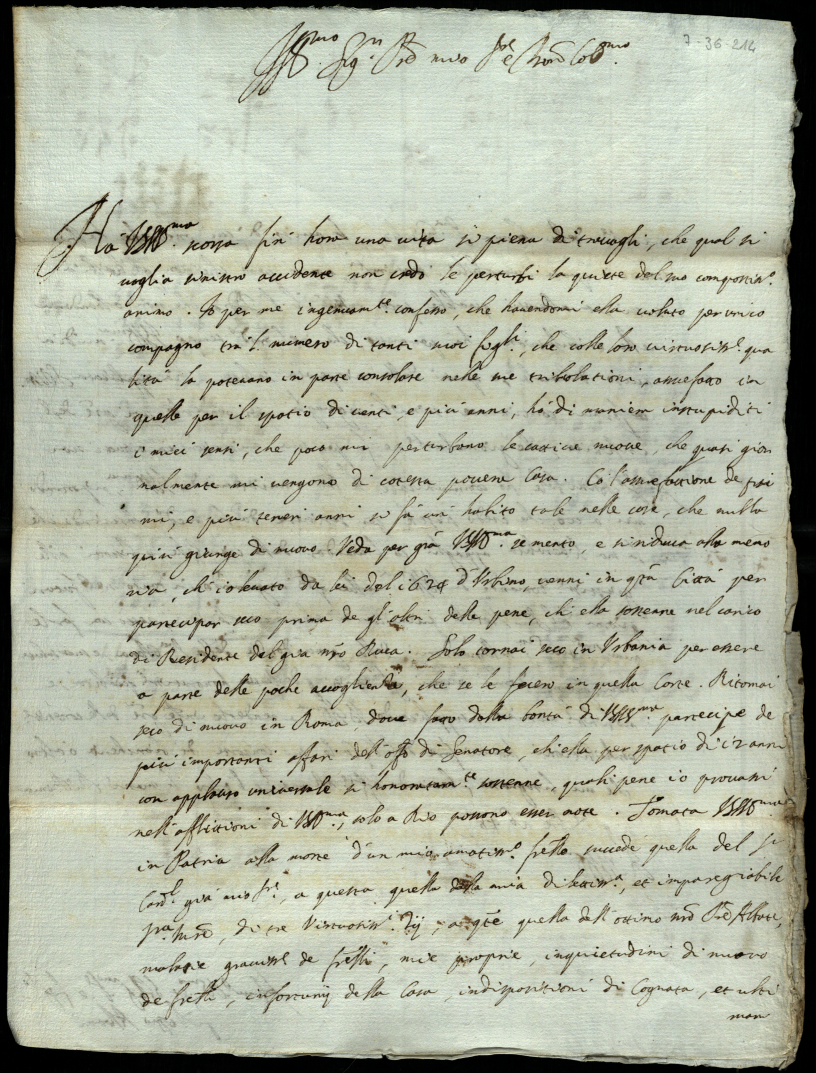 7-36-214
Ill.mo Sig.r Pre mio Sig.re e Pron Col.mo
Hà VS Ill.ma scorsa sin' hora una vita si piena di travagli, che qual si
voglia sinistro accidente non credo le perturbi la quiete del suo compostiss.o
animo. Io per me ingenuam.te confesso, che havendomi ella voluto per unico
compagno trà l' numero di tanti suoi figli, che colle loro virtuosiss.e qua
lità la potevano in parte consolare nelle sue tribolationi, assuefatto in
quelle per il spatio di venti, e più anni, hà di maniera instupiditi
i miei sensi, che poco mi perturbano le cattive nuove, che quasi gior
nalmente mi vengono di cotesta povera Casa. Cò l'assuefattione de primi
mi, e più teneri anni si fà un' habito tale nelle cose, che nulla
più giunge di nuovo. Veda per grã VS Ill.ma se mento, e si riduca alla memo
ria, ch' io levato da lei del 1624 d'Urbino, venni in q.ta Città per
partecipar seco prima de gl'altri delle pene, ch' ella sostenne nel carico
di Residente del già nro Duca. Solo tornai seco in Urbania per essere
a parte delle poche accoglienze, che se le fecero in quella Corte. Ritornai
seco di nuovo in Roma, dove fatto dalla bontà di VS Ill.ma partecipe de
più importanti affari dell'offo di Senatore, ch'ella per spatio di 12 anni
con applauso universale si honoratam.te sostenne, quali pene io provassi
nell'afflittioni di VS Ill.ma, solo a Dio possono esser note. Tornata VS Ill.ma
in Patria alla morte d'un mio amatiss.o frello succede quella del S.r
Card.l già mio Sr.e, a questa quella della mia dilettiss.a, et impareggiabile
Sra Mre, di tre Virtuosiss.i Zij, a q.te quella dell'ottimo nro Pre Abbate,
malatie graviss.e de frelli, mie proprie, inquietudini di nuovo
de frelli, infortunij della Casa, indispositioni di Cognata, et ulti
mam